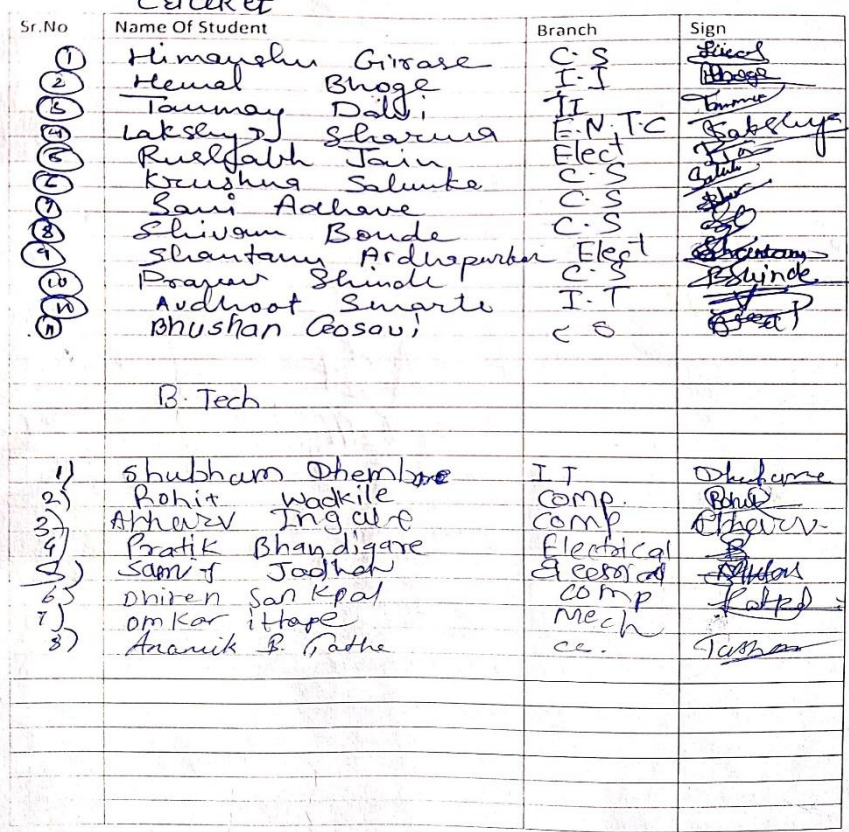 Cricket
Sr.No Name Of Student Branch Sign
1 Himanshu Girase C.S
2 Hemal Bhoge I.I Bhoge
3 Tanmay Dalvi II Tanmay
4 Lakshya Sharma E.N.T.C Lakshya
5 Rushabh Jain Elect
6 Krushna Salunke C.S
7 Sani Adhave C.S
8 Shivam Bonde C.S
9 Shantanu Ardhapurkar Elect Shantanu
10 Pranav Shinde C.S PShinde
11 Avdhoot Smarte I.T
Bhushan Gosavi C S
B. Tech
1) Shubham Dhembre IT
2) Rohit Wadkile Comp. Rohit
3) Atharv Ingale Comp Atharv
4) Pratik Bhandigare Electrical
5) Samit Jadhav Electrical
6) Dhiren Sankpal Comp
7) Omkar ittape Mech
8) Anamik B. Tathe ce.